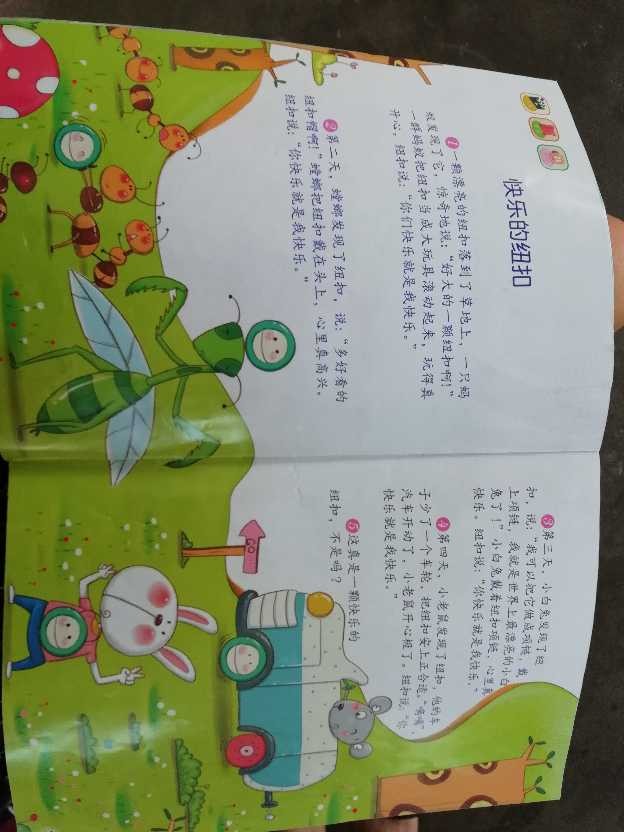 快乐的纽扣
1 一颗漂亮的纽扣落到了草地上，一只蚂
蚁发现了它，惊奇地说：“好大的一颗纽扣啊！”
一群蚂蚁把纽扣当成大玩具滚动起来，玩得真
开心。纽扣说：“你们快乐就是我快乐。”
2 第二天，螳螂发现了纽扣，说：“多好看的
纽扣帽啊！”螳螂把纽扣戴在头上，心里真高兴。
纽扣说：“你快乐就是我快乐。”
3 第三天，小白兔发现了纽
扣，说：“我可以把它做成项链，戴
上项链，我就是世界上最漂亮的小白
兔了！”小白兔戴着纽扣项链，心里真
快乐。纽扣说：“你快乐就是我快乐。”
4 第四天，小老鼠发现了纽扣，他的车
子少了一个车轮，把纽扣安上正合适。“嘀嘀”，
汽车开动了，小老鼠开心极了。纽扣说：“你
快乐就是我快乐。”
5 这真是一颗快乐的
纽扣，不是吗？
GO